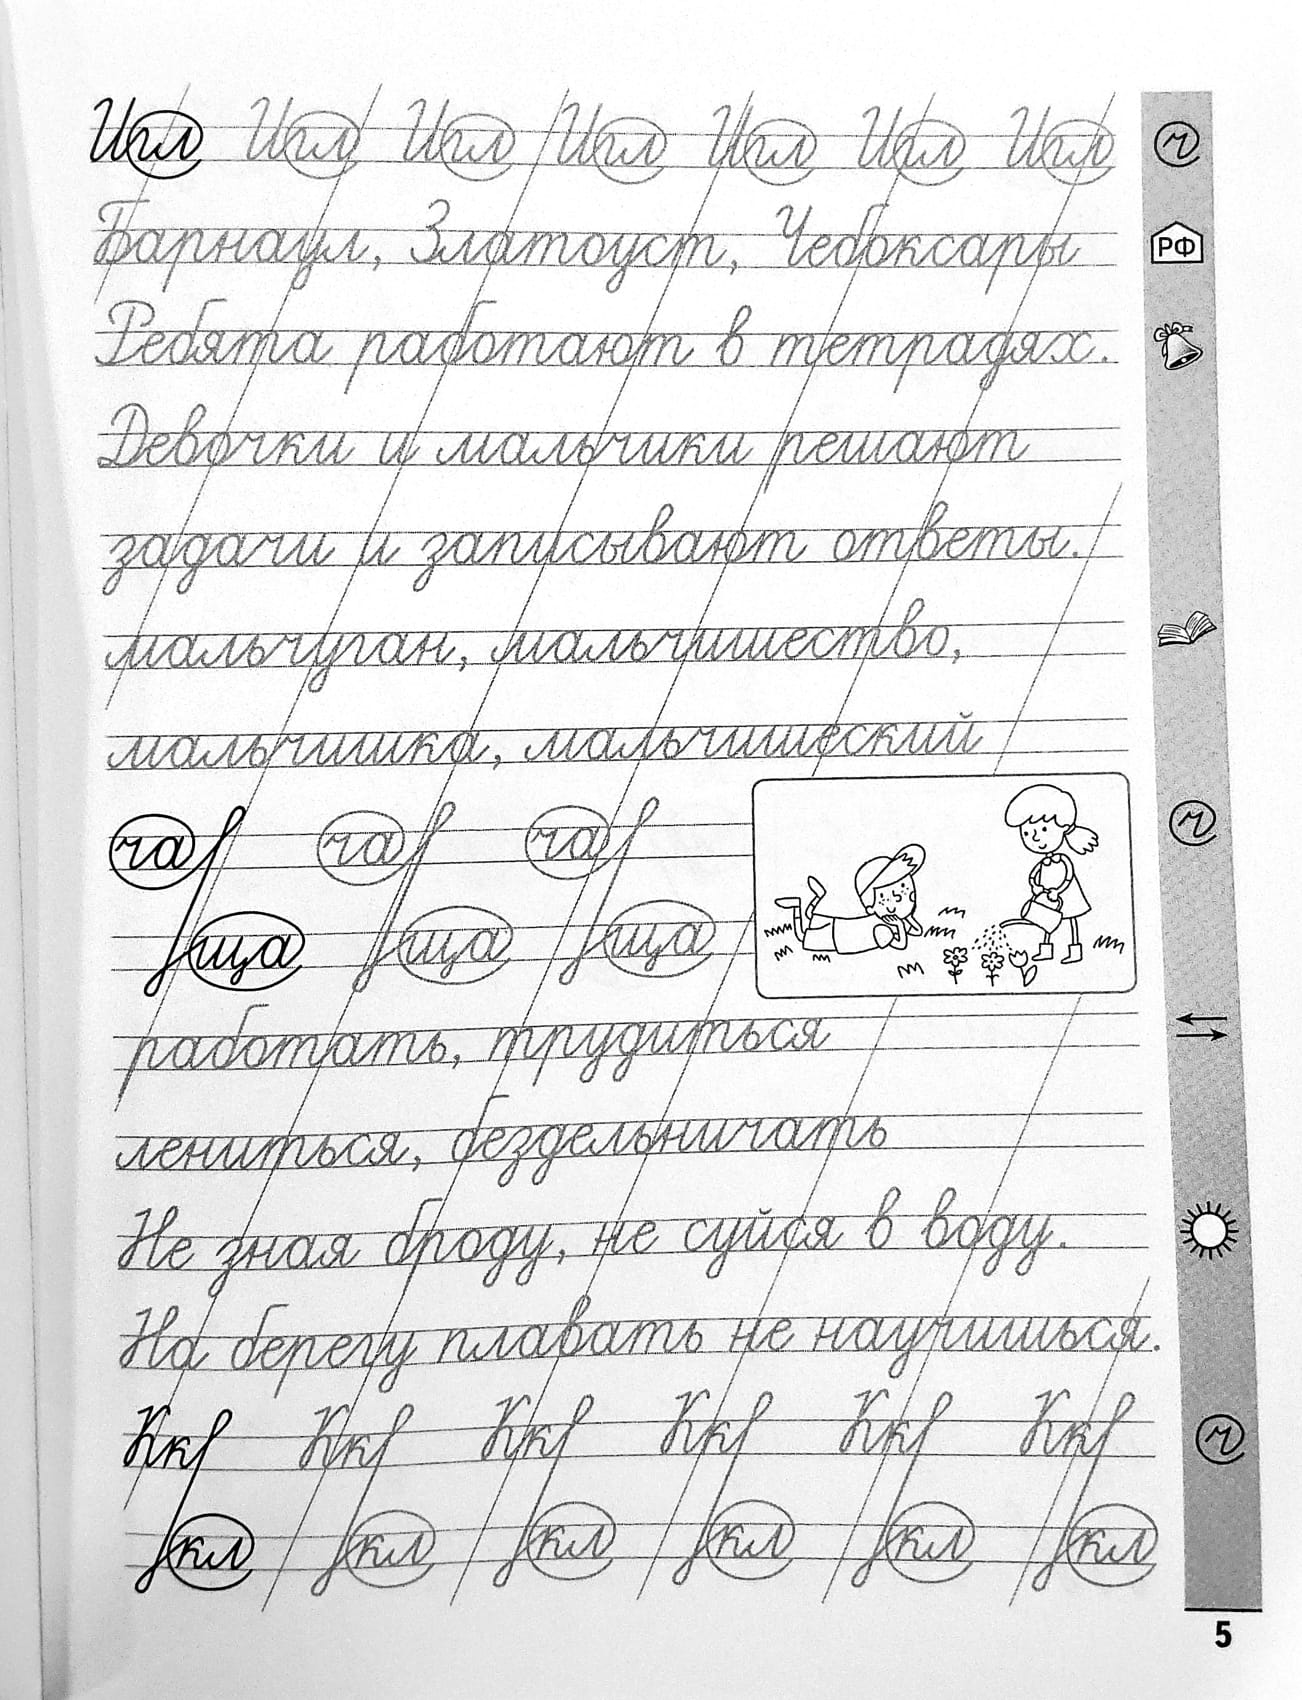 Игл Игл Игл Игл Игл Игл Игл
ч
Барнаул, Златоуст, Чебоксары
РФ
Ребята работают в тетрадях.
Девочки и мальчики решают
задачи и записывают ответы.
мальчуган, мальчишество,
мальчишка, мальчишеский
ча ча ча
ч
ща ща ща
работать, трудиться
лениться, бездельничать
Не зная броду, не суйся в воду.
На берегу плавать не научишься.
Кк Кк Кк Кк Кк Кк
ч
кл кл кл кл кл кл
5